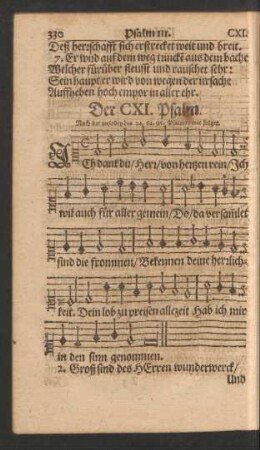 330 Psalm III. CXI.
Deß herrschafft sich erstrecket weit und breit.
7. Er wird auf dem weg trincke aus dem bache
Welcher fürüber fleusst und rauschet sehr:
Sein haupt er wird von wegen der ursache
Auffheben hoch empor in aller ehr.
Der CXI. Psalm.
Nach der melodey des 24. 62. 95. wie folget.
Ich danck dir/ Herr/ von hertzen rein/ Ich
wil auch für aller gemein/ Do/ da versamlet
sind die frommen/ Bekennen deine herrlich-
keit. Dein lob zu preisen allezeit Hab ich mir
in den sinn genommen.
2. Groß sind des HErren wunderwerck/
Und